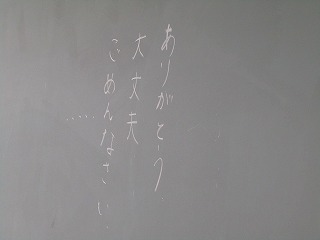 ありがとう
大丈夫
ごめんなさい
……